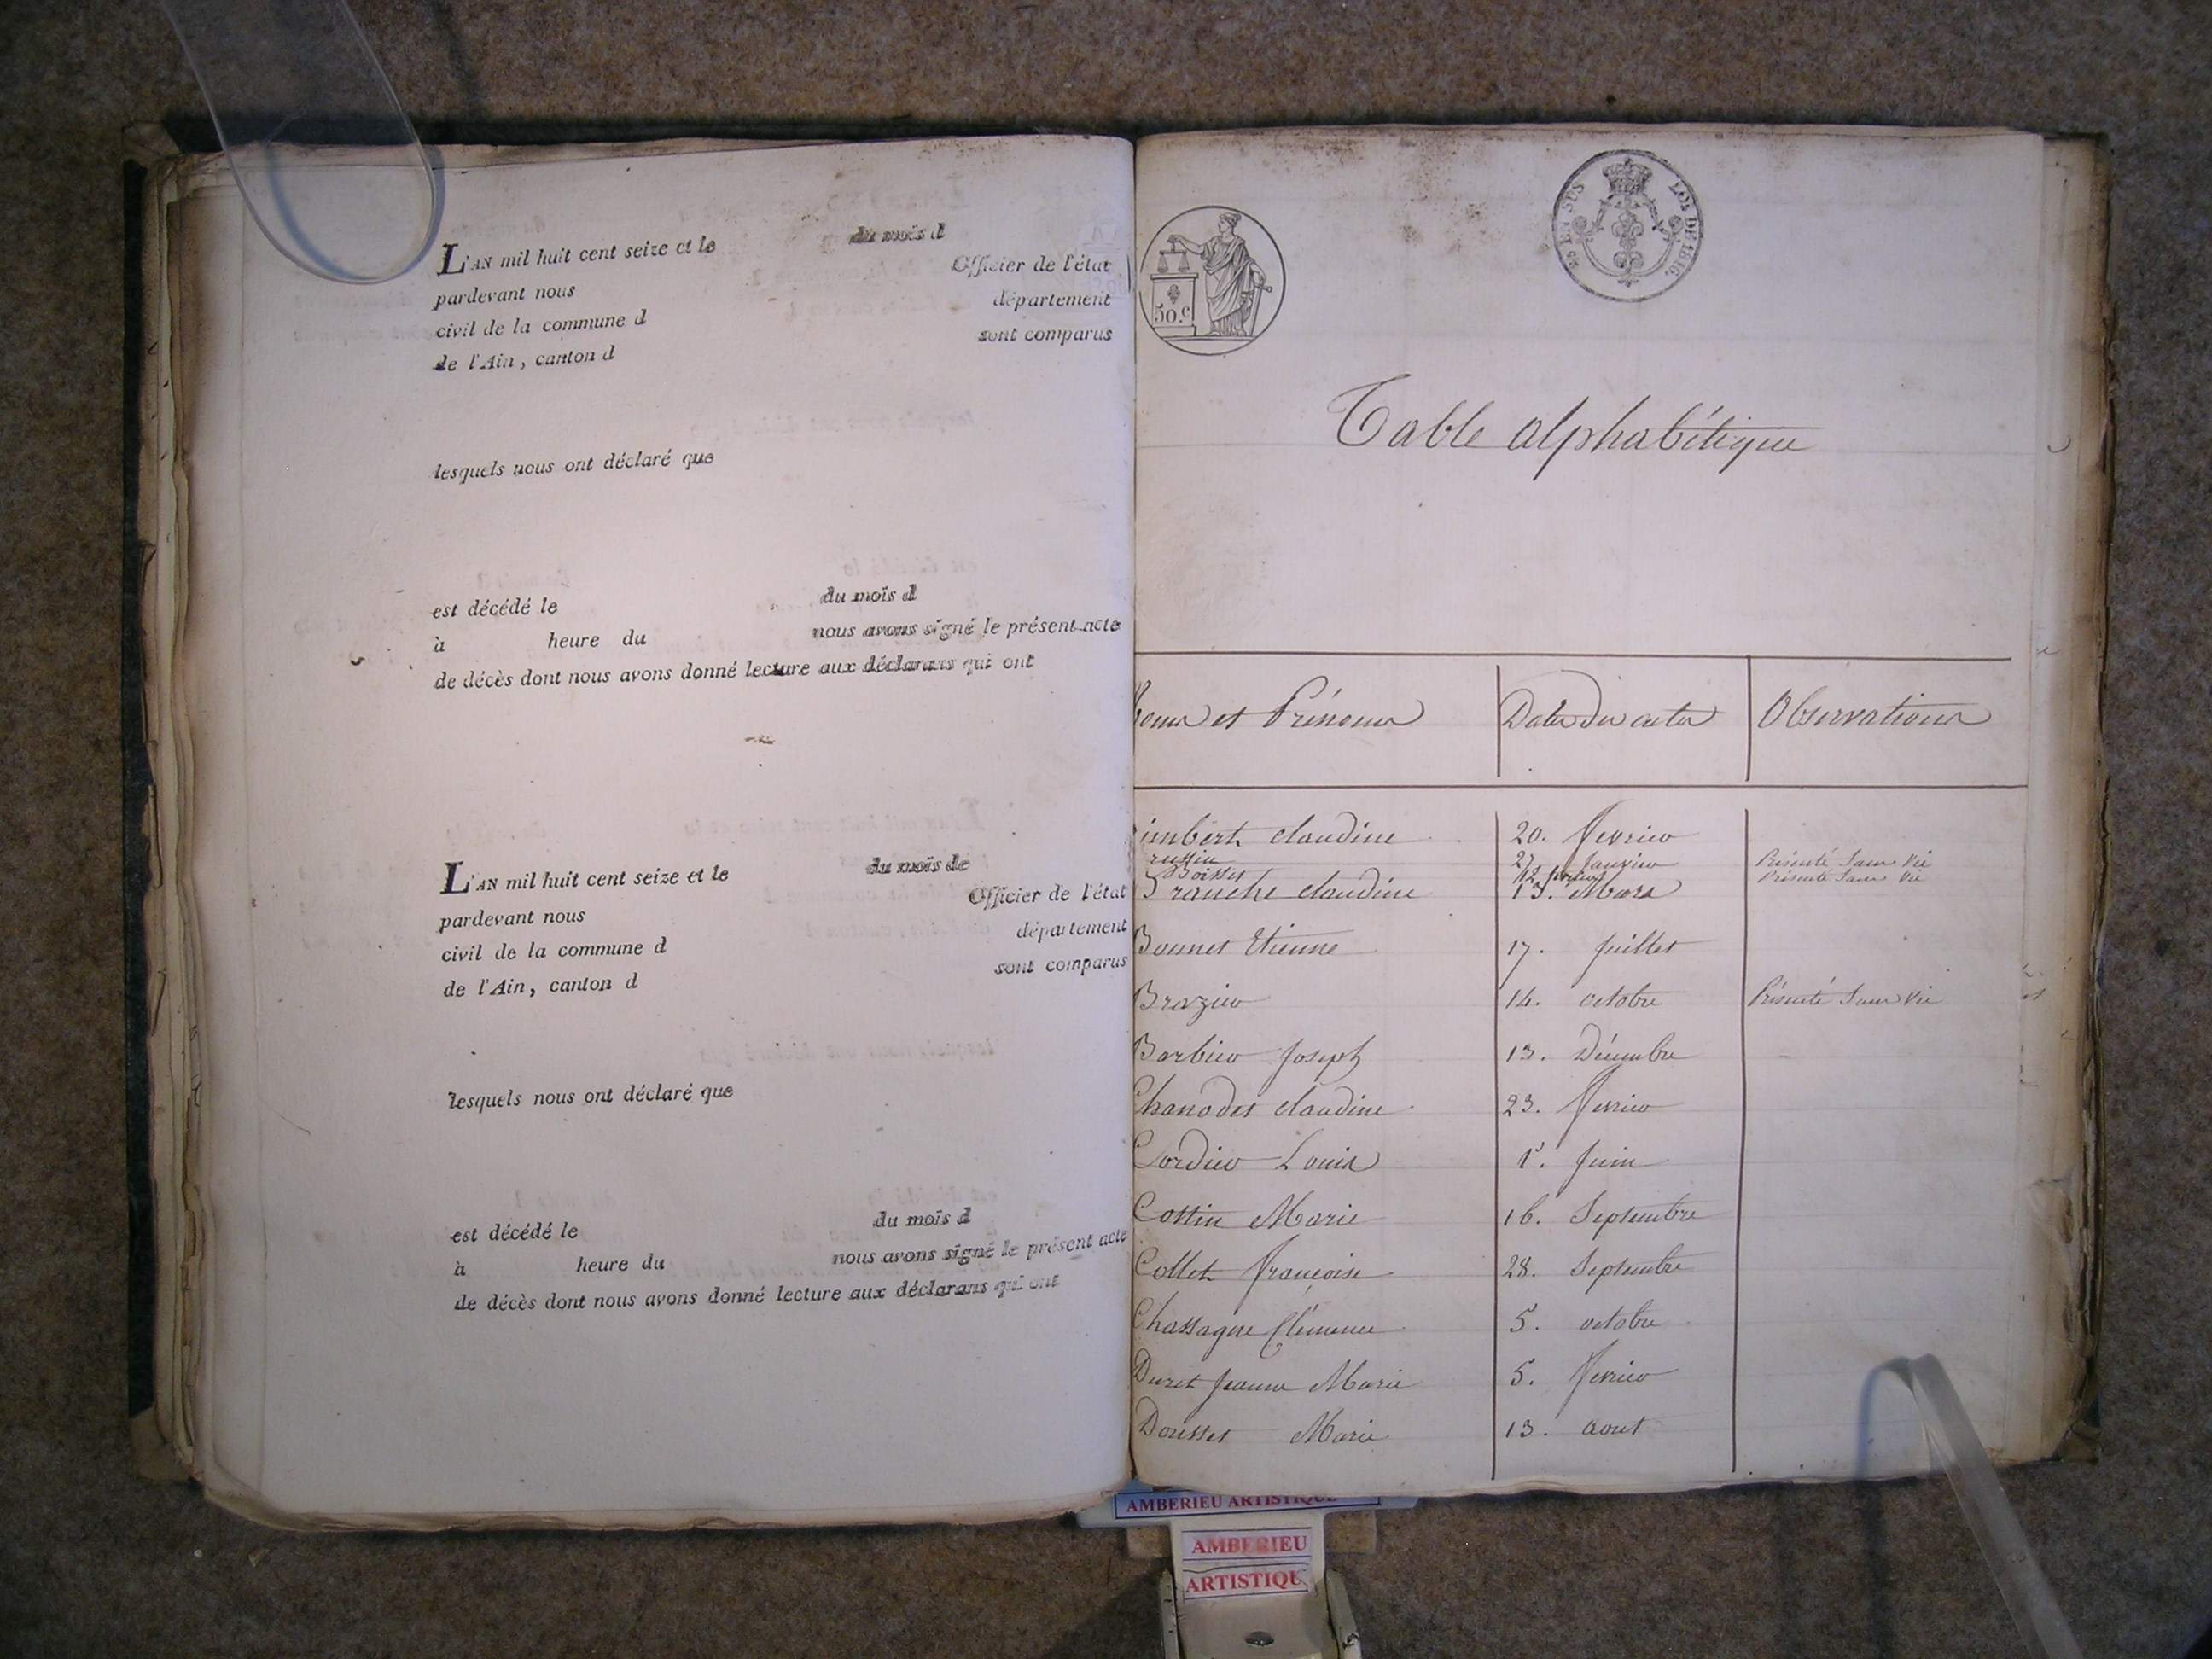 L'AN mil huit cent seize et le du mois d
pardevant nous Officier de l'état
civil de la commune d département
de l'Ain, canton d sont comparus
lesquels nous ont déclaré que
est décédé le du mois d
à heure du nous avons signé le présent acte
de décès dont nous avons donné lecture aux déclarans qui ont
L'AN mil huit cent seize et le du mois de
pardevant nous Officier de l'état
civil de la commune d département
de l'Ain, canton d sont comparus
lesquels nous ont déclaré que
est décédé le du mois d
à heure du nous avons signé le présent acte
de décès dont nous avons donné lecture aux déclarans qui ont
50.c
EN SUS LOI DE 1816.
Table alphabétique
Noms et Prénoms Dates des actes Observations
imbert claudine 20. fevrier
27 Janvier Présenté Sans Vie
Boisset 12 fevrier Présenté Sans Vie
Branche claudine 13. Mars
Bonnet Etienne 17. juillet
Brazier 14. octobre Présenté Sans Vie
Barbier Joseph 13. Décembre
Chanodet claudine 23. fevrier
Cordier Louis 1er. Juin
Costin Marie 16. Septembre
Collet françoise 28. Septembre
Chassagne Clémence 5. octobre
Duret Jeanne Marie 5. fevrier
Dousset Marie 13. aout
AMBERIEU ARTISTIQUE
AMBERIEU
ARTISTIQU